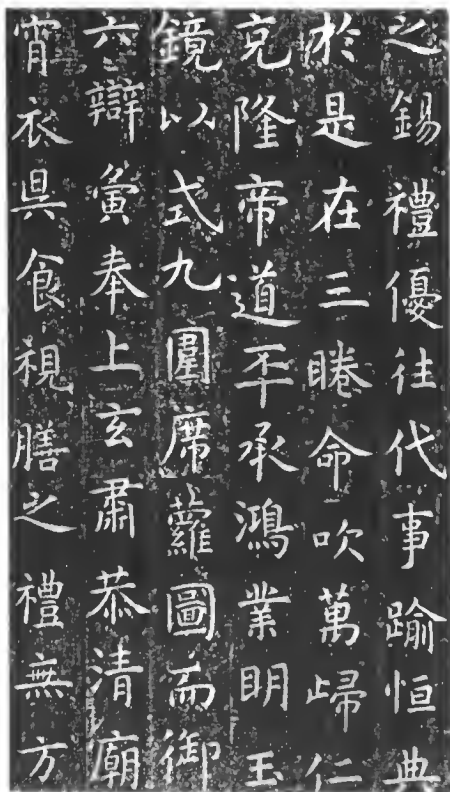 之錫禮優往代事踰恒典
於是在三眷命吹萬歸仁
克隆帝道丕承鴻業明玉
鏡以式九圍席蘿圖而御
六辯寅奉上玄肅恭清廟
宵衣旲食視膳之禮無方